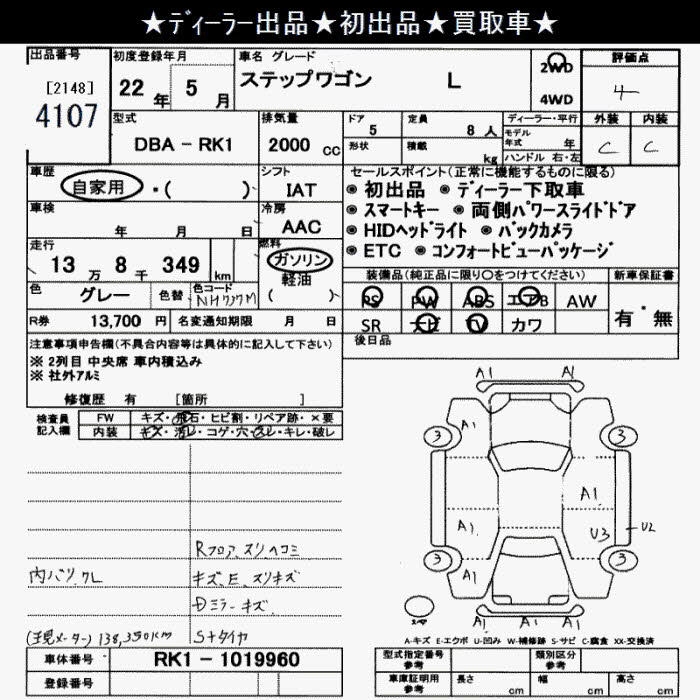 ★ディーラー出品★初出品★買取車★
出品番号
[2148]
4107
初度登録年月
22 年 5 月
車名 グレード
ステップワゴン L
2WD
4WD
評価点
4
外装 内装
C C
型式
DBA - RK1
排気量
2000 cc
ドア
5
定員
8 人
形状
積載
kg
ディーラー・平行
モデル
年式 年
ハンドル 右・左
車歴
自家用 ・( )
シフト
IAT
車検
年 月 日
冷房
AAC
走行
13 万 8 千 349 km
燃料
ガソリン
軽油
( )
色 グレー
色替
色コード
NH737M
R券 13,700 円
名変通知期限 月 日
セールスポイント(正常に機能するものに限る)
◉ 初出品 ◉ ディーラー下取車
◉ スマートキー ◉ 両側パワースライドドア
◉ HIDヘッドライト ◉ バックカメラ
◉ ETC ◉ コンフォートビューパッケージ
装備品(純正品に限り〇をつけてください)
PS PW ABS エアB AW
SR ナビ TV カワ
新車保証書
有・無
後日品
注意事項申告欄(不具合内容等は具体的に記入して下さい)
※ 2列目 中央席 車内積込み
※ 社外アルミ
修復歴 有 [箇所 ]
検査員
記入欄
FW キズ・飛石・ヒビ割・リペア跡・×要
内装 キズ・汚レ・コゲ・穴・スレ・キレ・破レ
Rフロア、スリ、ヘコミ
内バリ、クレ
キズ、E、スリキズ
Dミラーキズ
(現メーター) 138,350km
S+タイヤ
A1 A1
A1
3 3
A1
A1
U3
U2
3 3
A1
A1 A1
A-キズ E-エクボ U-凹み W-補修跡 S-サビ C-腐食 XX-交換済
車体番号 RK1 - 1019960
登録番号
型式指定番号
参考
類別区分
参考
車庫証明用
参考
長さ cm
幅 cm
高さ cm